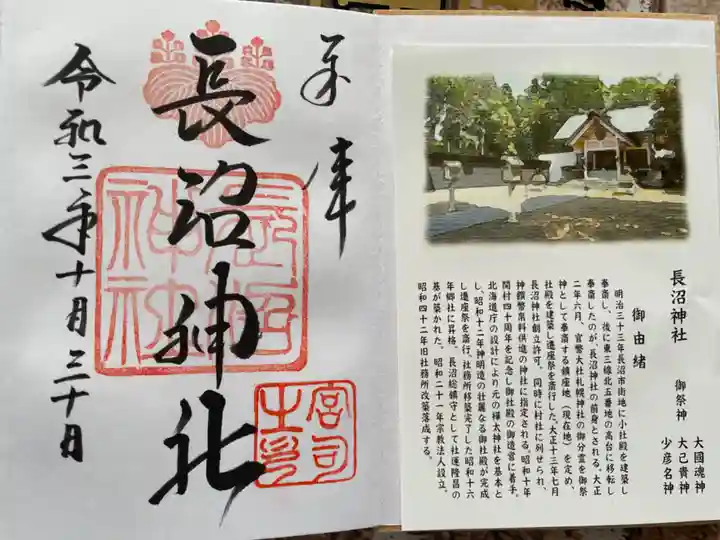 奉拝
長沼神社
令和三年十月三十日
長沼
神社
宮司
之印
長沼神社
御祭神
大國魂神
大己貴神
少彦名神
御由緒
明治三十三年長沼市街地に小社殿を建築し
奉斎し、後に東三線北五番地の高台に移転し
奉斎したのが、長沼神社の前身とされる。大正
二年六月、官幣大社札幌神社の御分霊を御祭
神として奉斎する鎮座地（現在地）を定め、
社殿を建築し遷座祭を斎行した。大正十三年七月
長沼神社創立許可。同時に村社に列せられ、
神饌幣帛料供進の神社に指定される。昭和十年
開村四十周年を記念し御社殿の御造営に着手。
北海道庁の設計により元の樺太神社を基本と
し、昭和十二年神明造の壮麗なる御社殿が完成
し遷座祭を斎行。社務所移築完了した昭和十六
年郷社に昇格。長沼総鎮守として社運隆昌の
基が築かれた。昭和二十一年宗教法人設立。
昭和四十二年旧社務所改築落成する。